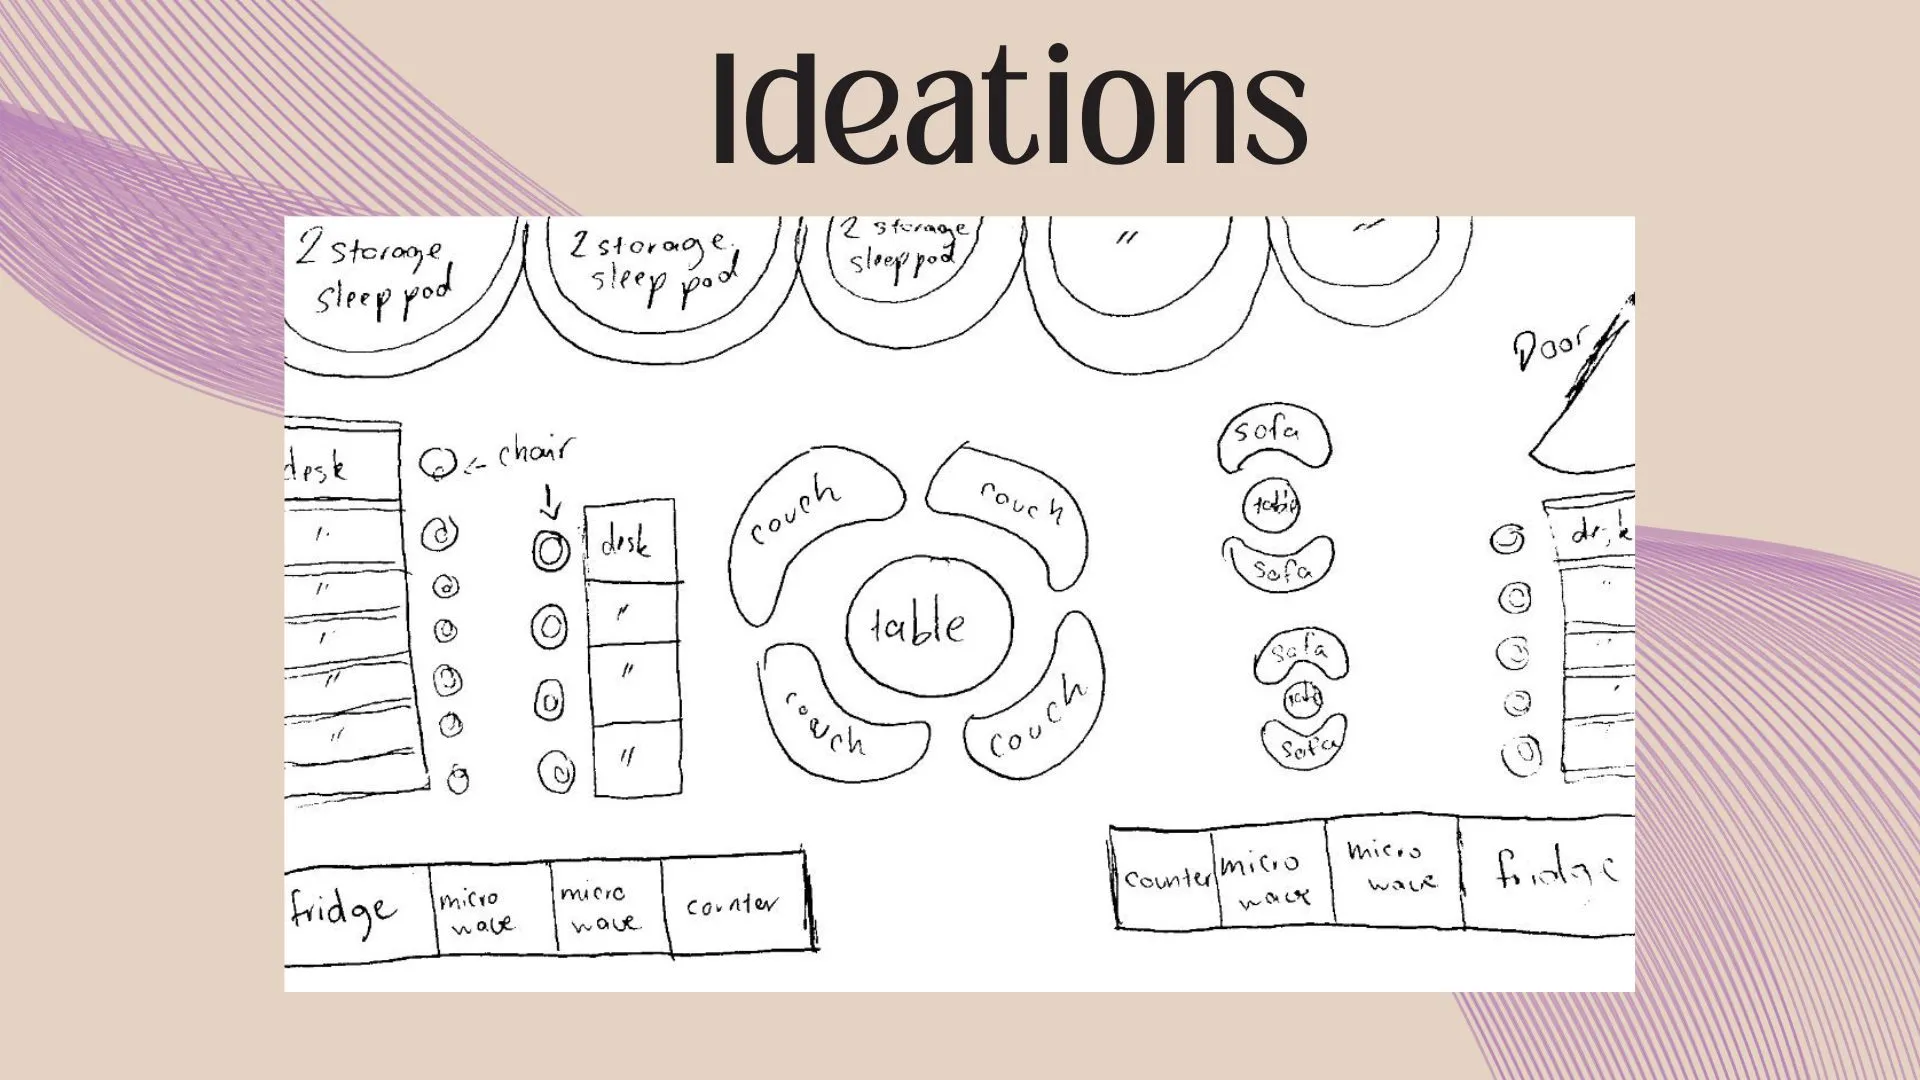 Ideations
2 storage
sleep pod
2 storage
sleep pod
2 storage
sleep pod
"
"
Door
desk
"
"
"
"
"
← chair
desk
"
"
"
couch
couch
table
couch
couch
sofa
table
sofa
sofa
table
sofa
desk
"
"
"
fridge
micro
wave
micro
wave
counter
counter
micro
wave
micro
wave
fridge